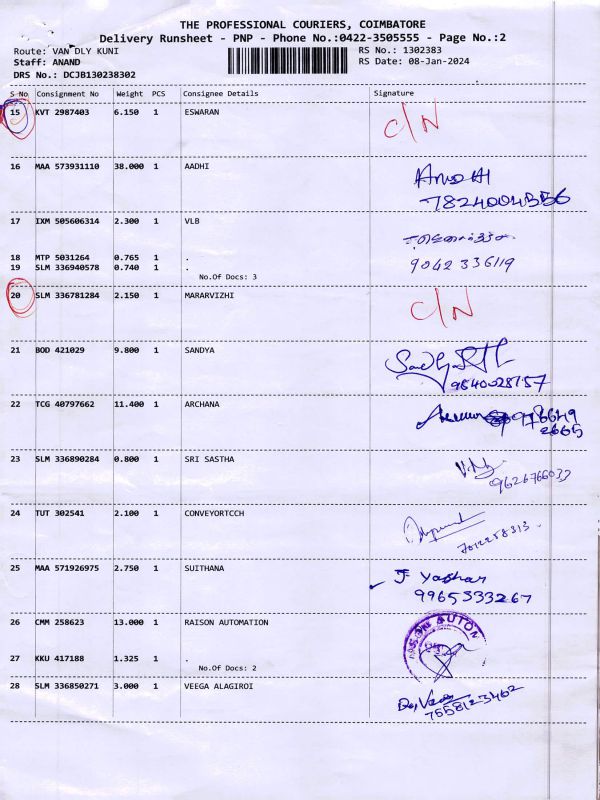 THE PROFESSIONAL COURIERS, COIMBATORE
Delivery Runsheet - PNP - Phone No.:0422-3505555 - Page No.:2
Route: VAN DLY KUNI RS No.: 1302383
Staff: ANAND RS Date: 08-Jan-2024
DRS No.: DCJB130238302
S No Consignment No Weight PCS Consignee Details Signature
15 KVT 2987403 6.150 1 ESWARAN C/N
16 MAA 573931110 38.000 1 AADHI
7824004356
17 IXM 505606314 2.300 1 VLB
18 MTP 5031264 0.765 1 .
19 SLM 336940578 0.740 1 . 9042336119
No.Of Docs: 3
20 SLM 336781284 2.150 1 MARARVIZHI C/N
21 BOD 421029 9.800 1 SANDYA
9840028157
22 TCG 40797662 11.400 1 ARCHANA
23 SLM 336890284 0.800 1 SRI SASTHA
9626766033
24 TUT 302541 2.100 1 CONVEYORTCCH
7012258313
25 MAA 571926975 2.750 1 SUITHANA
9965333267
26 CMM 258623 13.000 1 RAISON AUTOMATION
27 KKU 417188 1.325 1 .
No.Of Docs: 2
28 SLM 336850271 3.000 1 VEEGA ALAGIROI
7558123462